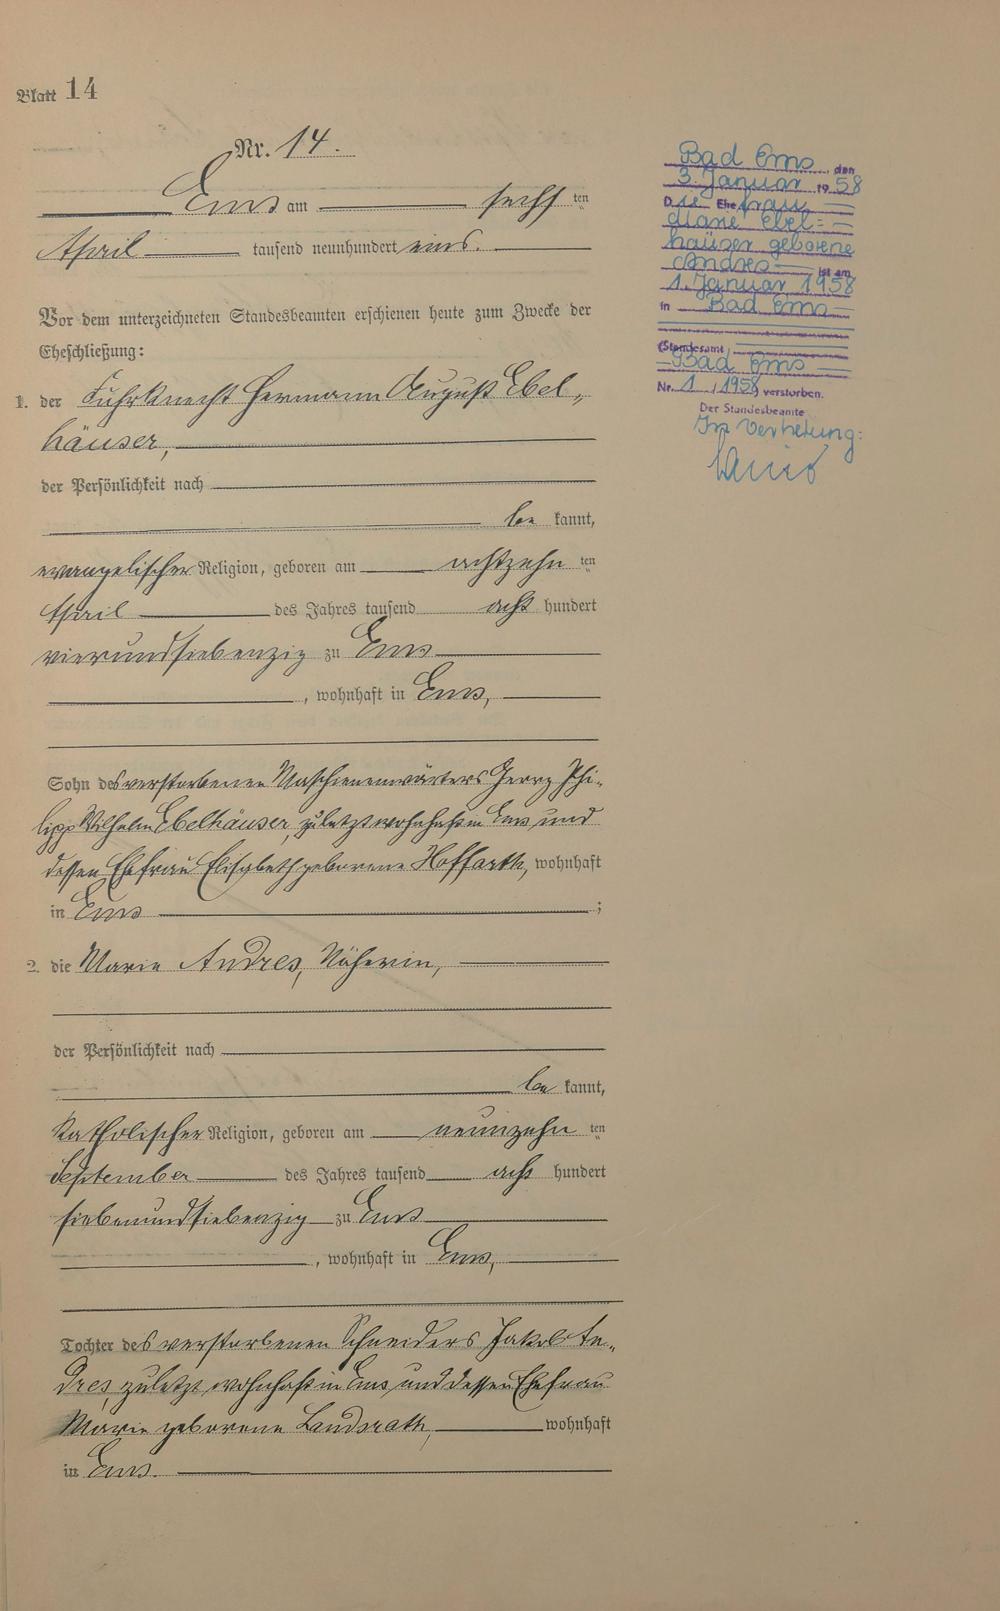 Blatt 14
Nr. 14.
Ems am sechsten
April tausend neunhundert eins.
Vor dem unterzeichneten Standesbeamten erschienen heute zum Zwecke der
Eheschließung:
1. der Fuhrknecht Hermann August Ebel-
häuser,
der Persönlichkeit nach
bekannt,
evangelischer Religion, geboren am achtzehnten
April des Jahres tausend acht hundert
vierundsiebenzig zu Ems
, wohnhaft in Ems,
Sohn des verstorbenen Maschienenwärters Georg Phi-
lipp Wilhelm Ebelhäuser, zuletzt wohnhaft in Ems und
dessen Ehefrau Elisabeth geborene Hoffarth, wohnhaft
in Ems ;
2. die Marie Andres, Näherin,
der Persönlichkeit nach
bekannt,
katholischer Religion, geboren am neunzehnten
September des Jahres tausend acht hundert
siebenundsiebenzig zu Ems
, wohnhaft in Ems,
Tochter des verstorbenen Schneiders Jakob An-
dres, zuletzt wohnhaft in Ems und dessen Ehefrau
Marie geborene Landsrath, wohnhaft
in Ems.
Bad Ems, den
3. Januar 1958
Die Ehefrau
Marie Ebel=
häuser geborene
Andres ist am
1. Januar 1958
in Bad Ems
(Standesamt
Bad Ems
Nr. 1 / 1958) verstorben.
Der Standesbeamte
In Vertretung: